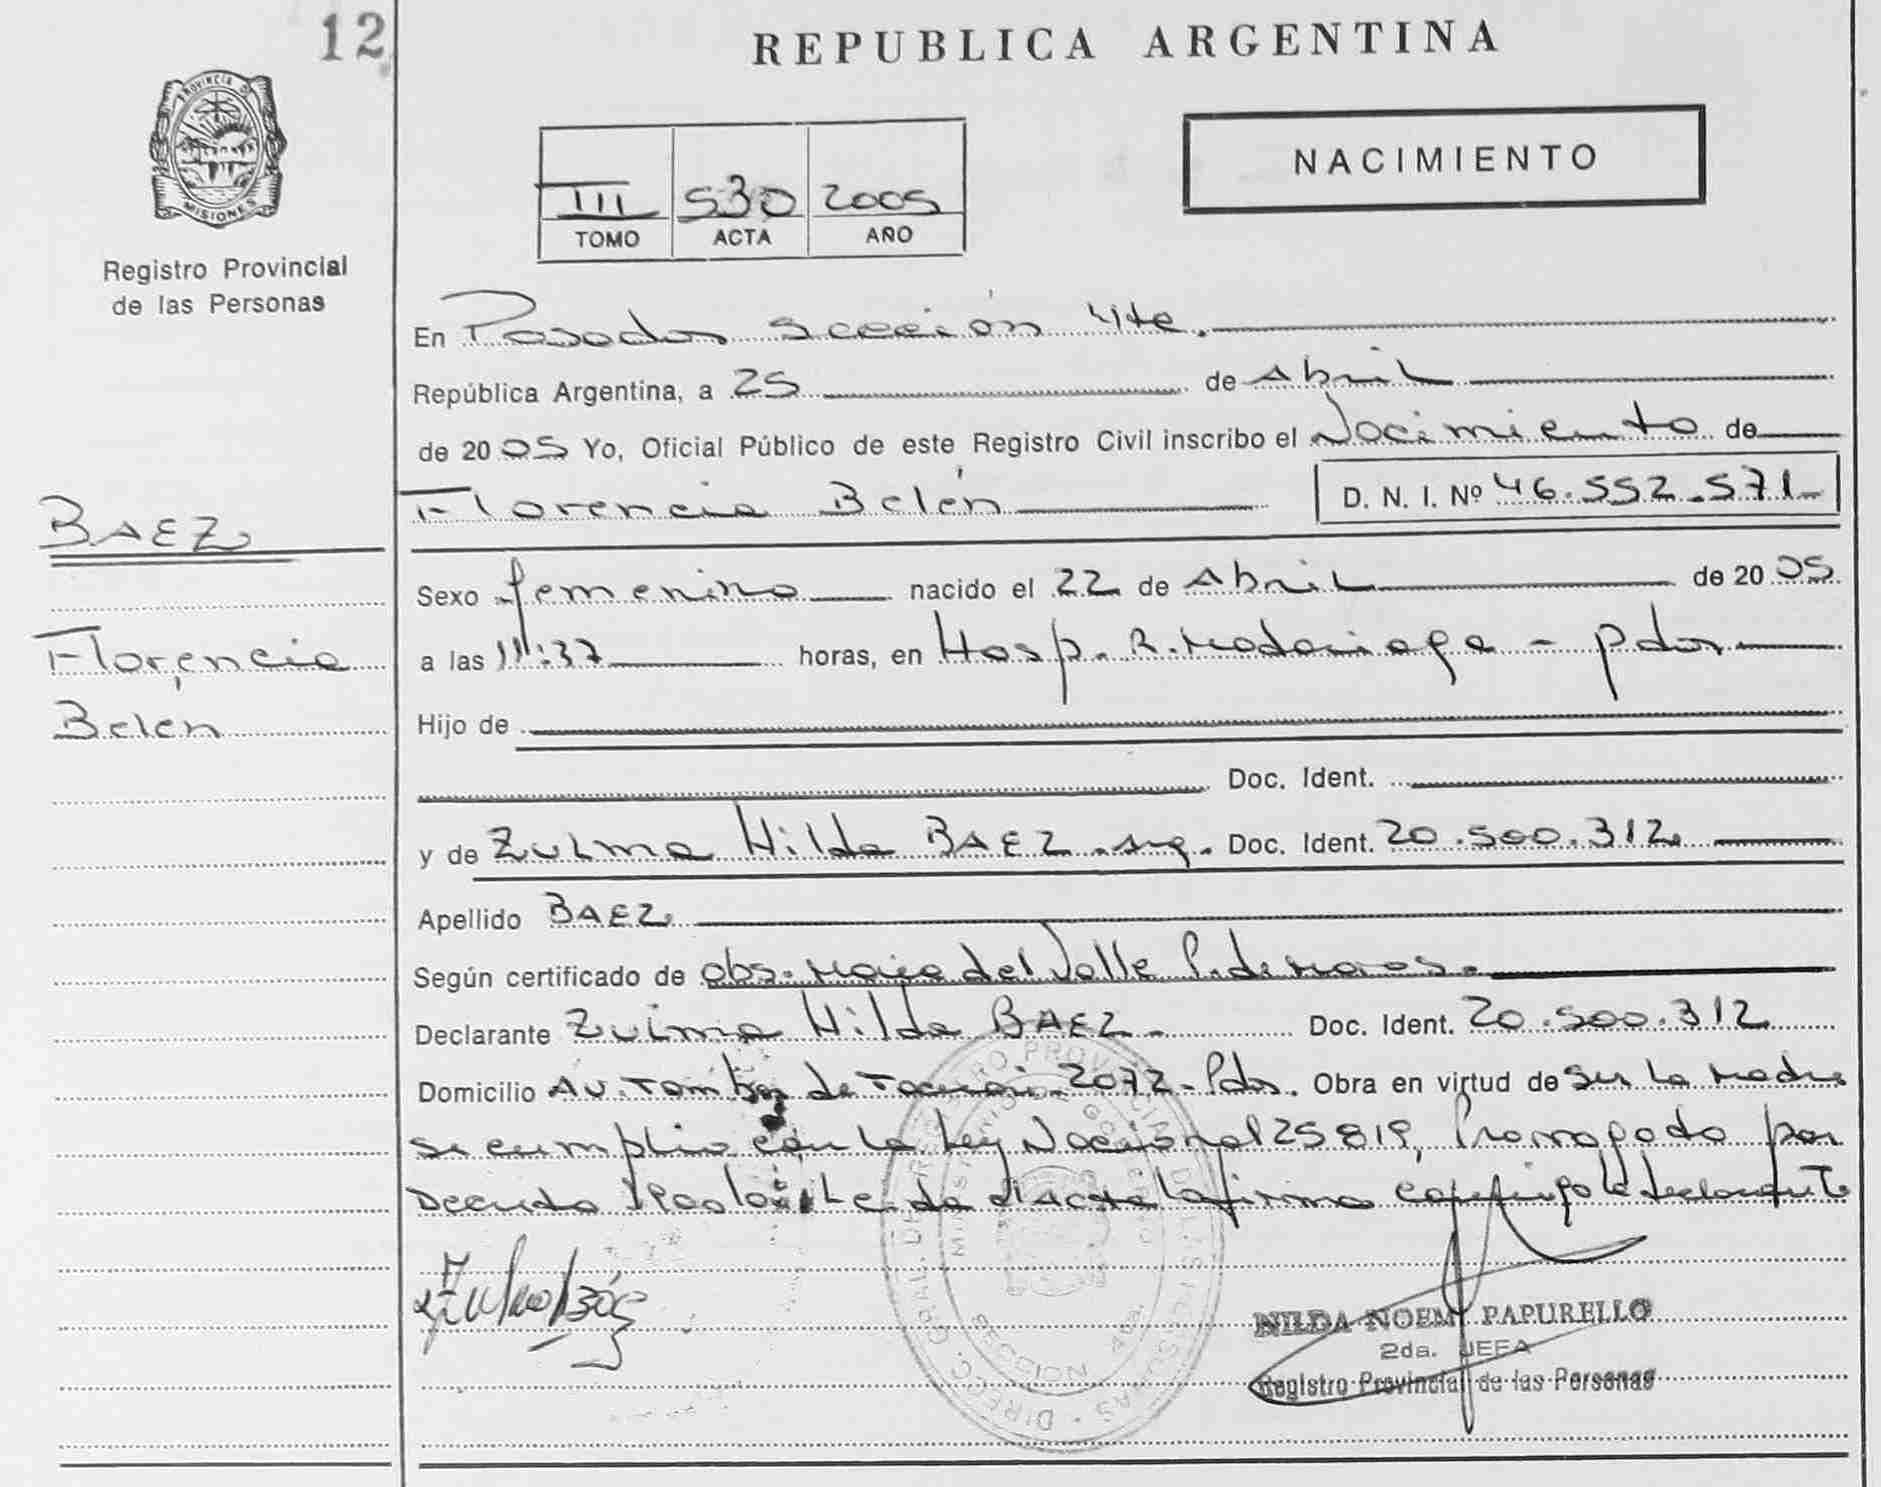 12
REPUBLICA ARGENTINA
PROVINCIA D
MISIONES
Registro Provincial
de las Personas
III 530 2005
TOMO ACTA AÑO
NACIMIENTO
En Posadas sección 4te.
República Argentina, a 25 de Abril
de 2005 Yo, Oficial Público de este Registro Civil inscribo el Nacimiento de
Florencia Belén D. N. I. Nº 46.552.571
BAEZ
Florencia
Belén
Sexo femenino nacido el 22 de Abril de 2005
a las 11:37 horas, en Hosp. R. Madariaga - pdas
Hijo de
Doc. Ident.
y de Zulma Hilda BAEZ. arg. Doc. Ident. 20.500.312
Apellido BAEZ
Según certificado de obs. Maria del Valle P. de
Declarante Zulma Hilda BAEZ Doc. Ident. 20.500.312
Domicilio Av. de 2072 - Pdas. Obra en virtud de ser la madre
se cumplio con la Ley Nacional 25819, Promogado por
Decreto la firma la declarante
NILDA NOEMI PAPURELLO
2da. JEFA
Registro Provincial de las Personas